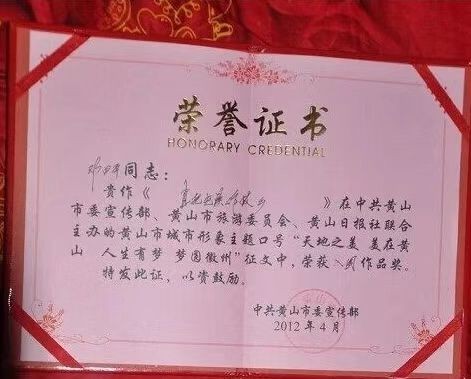 荣誉证书
HONORARY CREDENTIAL
同志:
贵作《 》在中共黄山
市委宣传部、黄山市旅游委员会、黄山日报社联合
主办的黄山市城市形象主题口号“天地之美 美在黄
山 人生有梦 梦圆徽州”征文中,荣获 作品奖。
特发此证,以资鼓励。
中共黄山市委宣传部
2012年4月